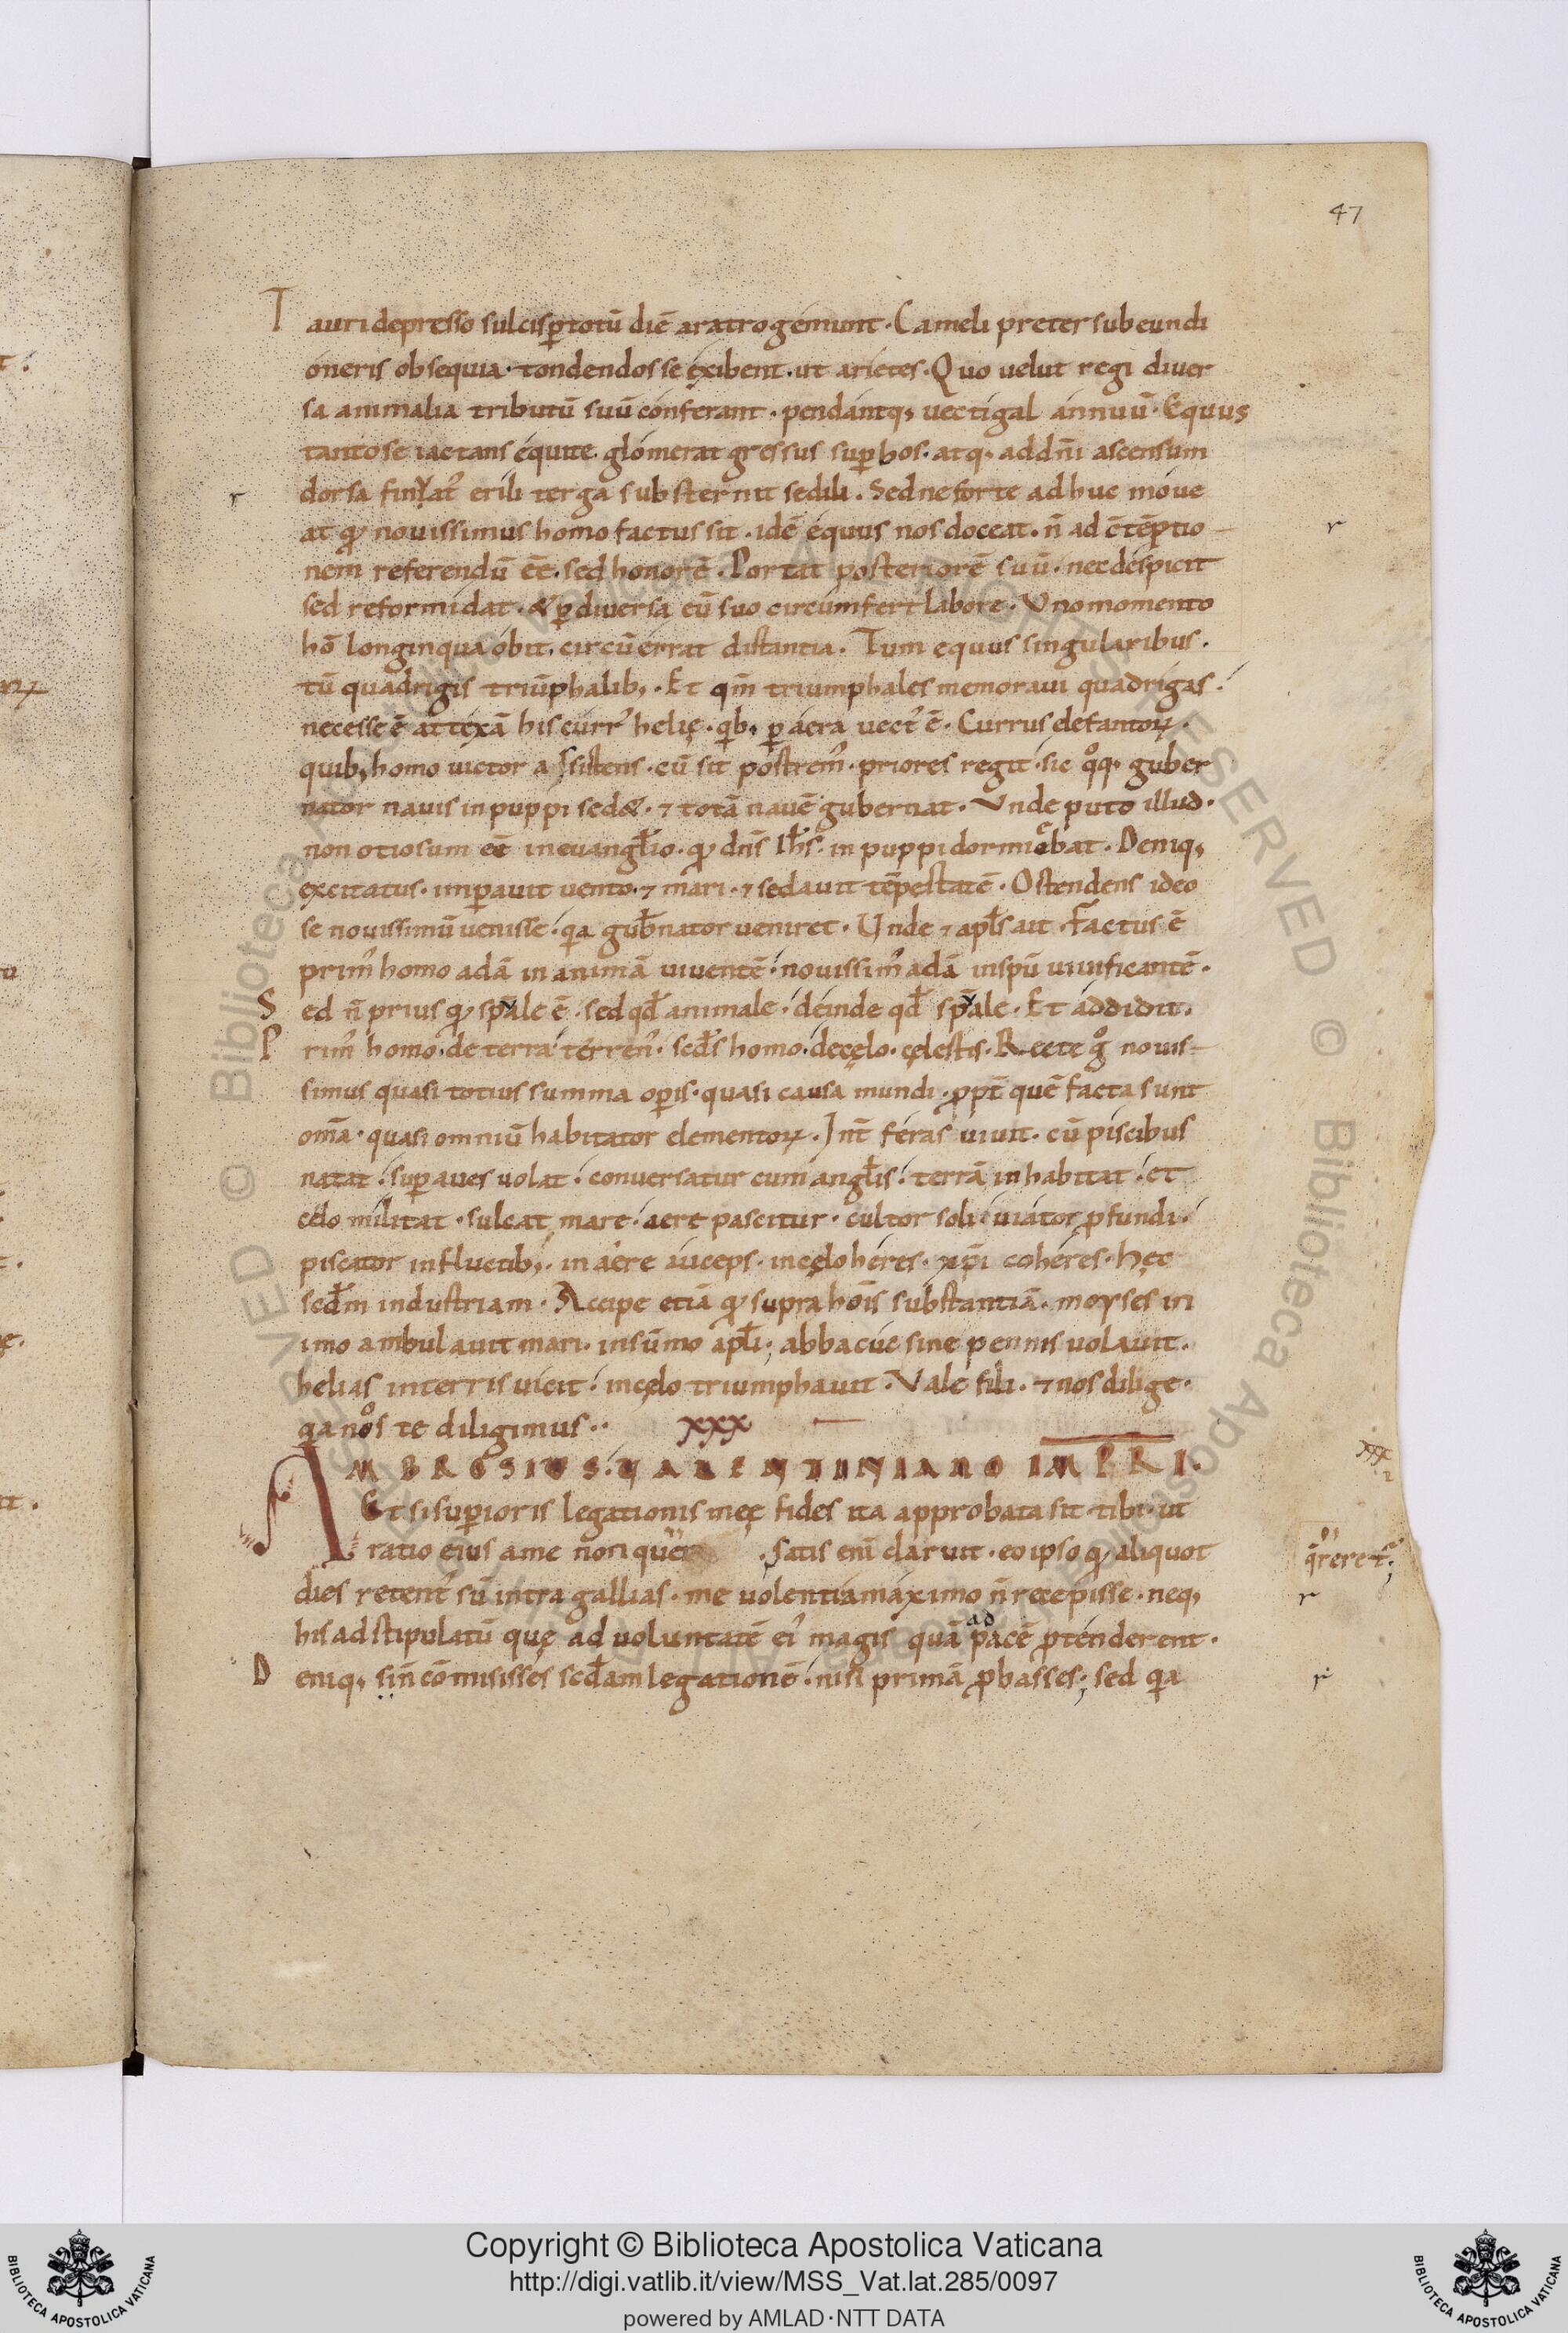 47
Tauri depresso sulcis ꝑ totū diē aratro gemunt. Cameli preter subeundi
oneris obsequia. tondendos se exibent. ut arietes. Quo uelut regi diuer
sa animalia tributū suū conferant. pendantq; uectigal annuū. Equus
tanto se iactans equite. glomerat gressus suꝑbos. atq; ad dn̄i ascensum
dorsa sinuat᾽ erili terga substernit sedili. Sed ne forte adhuc moue
at qđ nouissimus homo factus sit. idē equus nos doceat. n̄ ad cōtēptio
nem referendū eē. sed honorē. Portat posteriorē suū. nec despicit
sed reformidat. & ꝑ diuersa cū suo circumfert labore. Uno momento
hō longinqua obit. circū errat distantia. Tum equus singularibus.
tū quadrigis triūphalib;. Et qm̄ triumphales memoraui quadrigas.
necesse ē attexā his curr᾽ helię. qb; ꝑ aera uect᾽ ē. Currus defantoꝝ.
quib; homo uictor assistens. cū sit postrem᾽. priores regit. sic qͦq; guber
nator nauis in puppi sed&. ⁊ totā nauē gubernat. Unde puto illud.
non otiosum eē in euangłio. qđ dn̄s Ihs̄. in puppi dormiebat. Deniq;
excitatus. imꝑauit uento. ⁊ mari. ⁊ sedauit tēpestatē. Ostendens ideo
se nouissimū uenisse. qa gub̄nator ueniret. Unde ⁊ apłs ait. Factus ē
prim᾽ homo adā in animā uiuentē. nouissim᾽ adā in spū uiuificantē.
Sed n̄ prius qđ sp̄ale ē. sed qđ animale. deinde qđ sp̄ale. Et addidit.
Prim᾽ homo. de terra terren᾽. scđs homo. de cęlo. cęlestis. Recte gͦ nouis-
simus quasi totius summa oꝑis. quasi causa mundi. ꝓpt̄ quē facta sunt
om̄a. quasi omniū habitator elementoꝝ. Int̄ feras uiuit. cū piscibus
natat. suꝑ aues uolat. conuersatur cum angłis. terrā inhabitat. et
cęlo militat. sulcat mare. aere pascitur. cultor soli. uiator ꝓfundi.
piscator in fluctib;. in aere auceps. in cęlo heres. xp̄i coheres. Hęc
scđm industriam. Accipe etiā qđ supra hōis substantiā. moyses in
imo ambulauit mari. in sūmo apłi; abbacuc sine pennis uolauit.
helias in terris uicit. in cęlo triumphauit. Vale fili. ⁊ nos dilige.
qa nos te diligimus.. xxx
AMBROSIUS. UALENTINIANO IMPRI.
Etsi suꝑioris legationis meę fides ita approbata sit tibi. ut
ratio eius a me non quer . Satis eni clarunt. eo ipso qđ aliquot
q̄reret᾽;
dies retent᾽ sū intra gallias. me uolentia maximo n̄ recepisse. neq;
his ad stipulatū quę ad uoluntatē ei᾽ magis quā ad pacē ꝓtenderent.
Deniq; sin cōmisisses scđam legationē. nisi primā ꝓbasses; sed qa
xxx
r
r
r
r
Copyright © Biblioteca Apostolica Vaticana
http://digi.vatlib.it/view/MSS_Vat.lat.285/0097
powered by AMLAD·NTT DATA
BIBLIOTECA APOSTOLICA VATICANA
BIBLIOTECA APOSTOLICA VATICANA